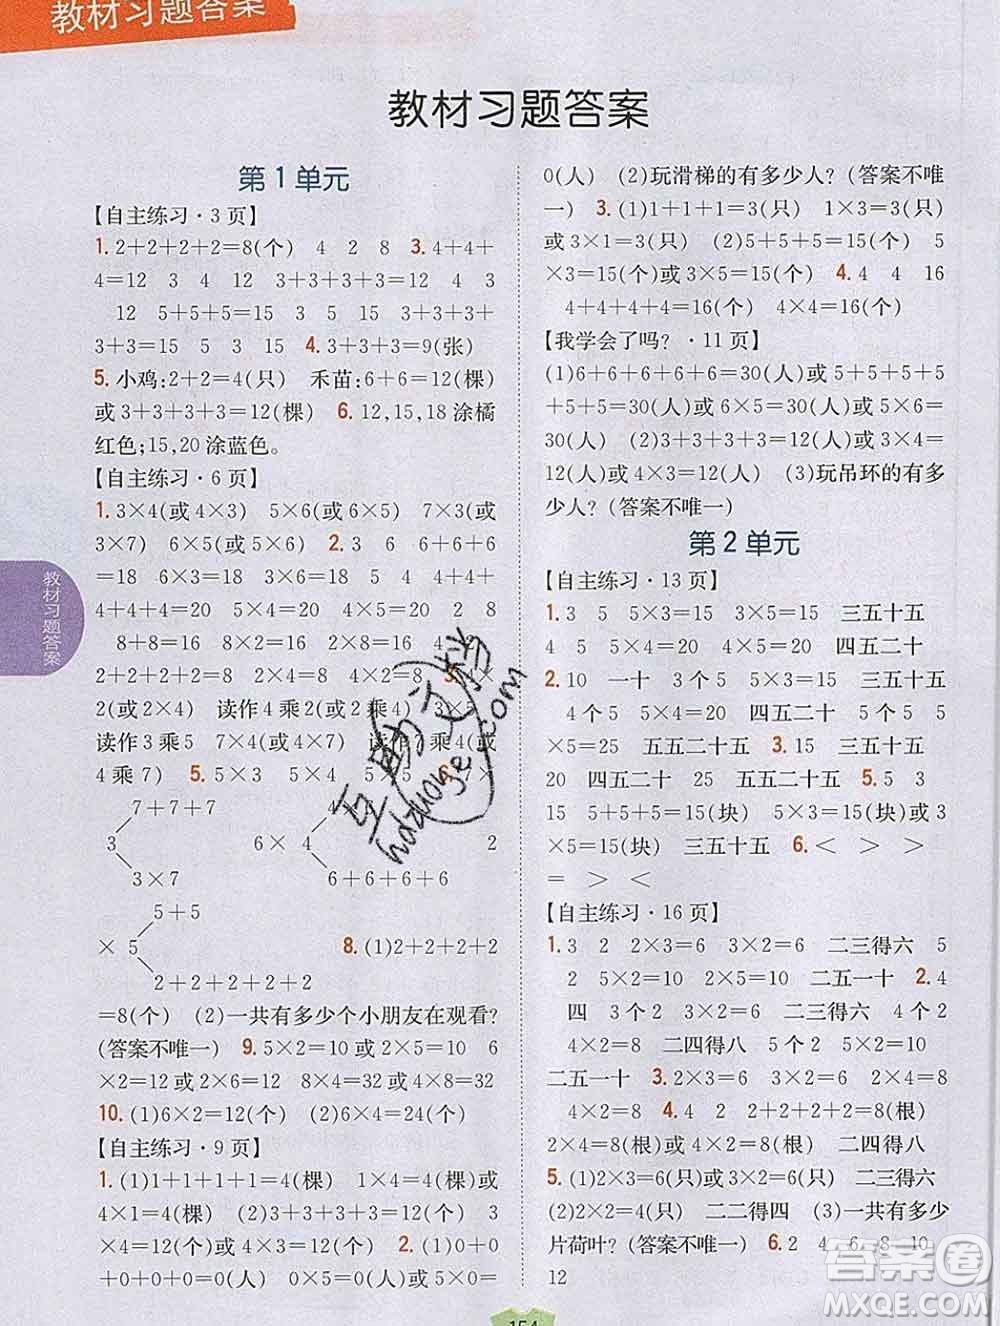 教材习题答案
教材习题答案
第1单元
【自主练习·3页】
1.2+2+2+2=8(个) 4 2 8 3.4+4+
4=12 4 3 12 3+3+3+3=12 4 3
12 5+5+5=15 5 3 15 3+3+3+
3+3=15 5 3 15 4.3+3+3=9(张)
5.小鸡:2+2=4(只) 禾苗:6+6=12(棵)
或3+3+3+3=12(棵) 6.12,15,18涂橘
红色;15,20涂蓝色。
【自主练习·6页】
1.3×4(或4×3) 5×6(或6×5) 7×3(或
3×7) 6×5(或5×6) 2.3 6 6+6+6
=18 6×3=18 3×6=18 5 4 4+4+
4+4+4=20 5×4=20 4×5=20 2 8
8+8=16 8×2=16 2×8=16 4 2
2+2+2+2=8 4×2=8 2×4=8
2(或2×4) 读作4乘2(或2乘4) 3×5
读作3乘5 7×4(或4×7)
4乘7) 5.5×3 5×4 5×5
7+7+7
3 6× 4 2
3×7 6+6+6+6
5+5
× 5 8.(1)2+2+2+2
2+2+2+2+2
=8(个) (2)一共有多少个小朋友在观看?
(答案不唯一) 9.5×2=10或2×5=10 6
×2=12或2×6=12 8×4=32或4×8=32
10.(1)6×2=12(个) (2)6×4=24(个)
【自主练习·9页】
1.(1)1+1+1+1=4(棵) 1×4=4(棵)或
4×1=4(棵) (2)3+3+3+3=12(个) 3
×4=12(个)或4×3=12(个) 2.(1)0+0
+0+0+0=0(个) 0×5=0(人)或5×0=
0(人) (2)玩滑梯的有多少人?(答案不唯
一) 3.(1)1+1+1=3(只) 1×3=3(只)
或3×1=3(只) (2)5+5+5=15(个) 5
×3=15(个)或3×5=15(个) 4.4 4 16
4+4+4+4=16(个) 4×4=16(个)
【我学会了吗?·11页】
(1)6+6+6+6+6=30(人)或5+5+5+5
+5+5=30(人) 6×5=30(人)或5×6=
30(人) (2)3+3+3+3=12(人) 3×4=
12(人)或4×3=12(人) (3)玩吊环的有多
少人?(答案不唯一)
第2单元
【自主练习·13页】
1.3 5 5×3=15 3×5=15 三五十五
4 5 5×4=20 4×5=20 四五二十
2.10 一十 3个5 3×5=15 三五十五
4个5 4×5=20 四五二十 5个5 5
×5=25 五五二十五 3.15 三五十五
20 四五二十 25 五五二十五 5.5
3 15 5+5+5=15(块) 5×3=15(块)或3
×5=15(块) 三五十五 6.< > >
= > <
【自主练习·16页】
1.3 2 2×3=6 3×2=6 二三得六 5
2 5×2=10 2×5=10 二五一十 2.4
四 3个2 3×2=6 二三得六 4个2
4×2=8 二四得八 5个2 5×2=10
二五一十 3.2×2=4 3×2=6 2×4=8
4×2=8 4.4 2 2+2+2+2=8(根)
2×4=8(根)或4×2=8(根) 二四得八
5.(1)2×3=6(只)或3×2=6(只) 二三得六
(2)2×2=4(只) 二二得四 (3)一共有多少
片荷叶?(答案不唯一) 6.2 4 6 8 10
12
教材习题答案
154
互助文档
hdzuoye.com
答案圈
MXQE.COM